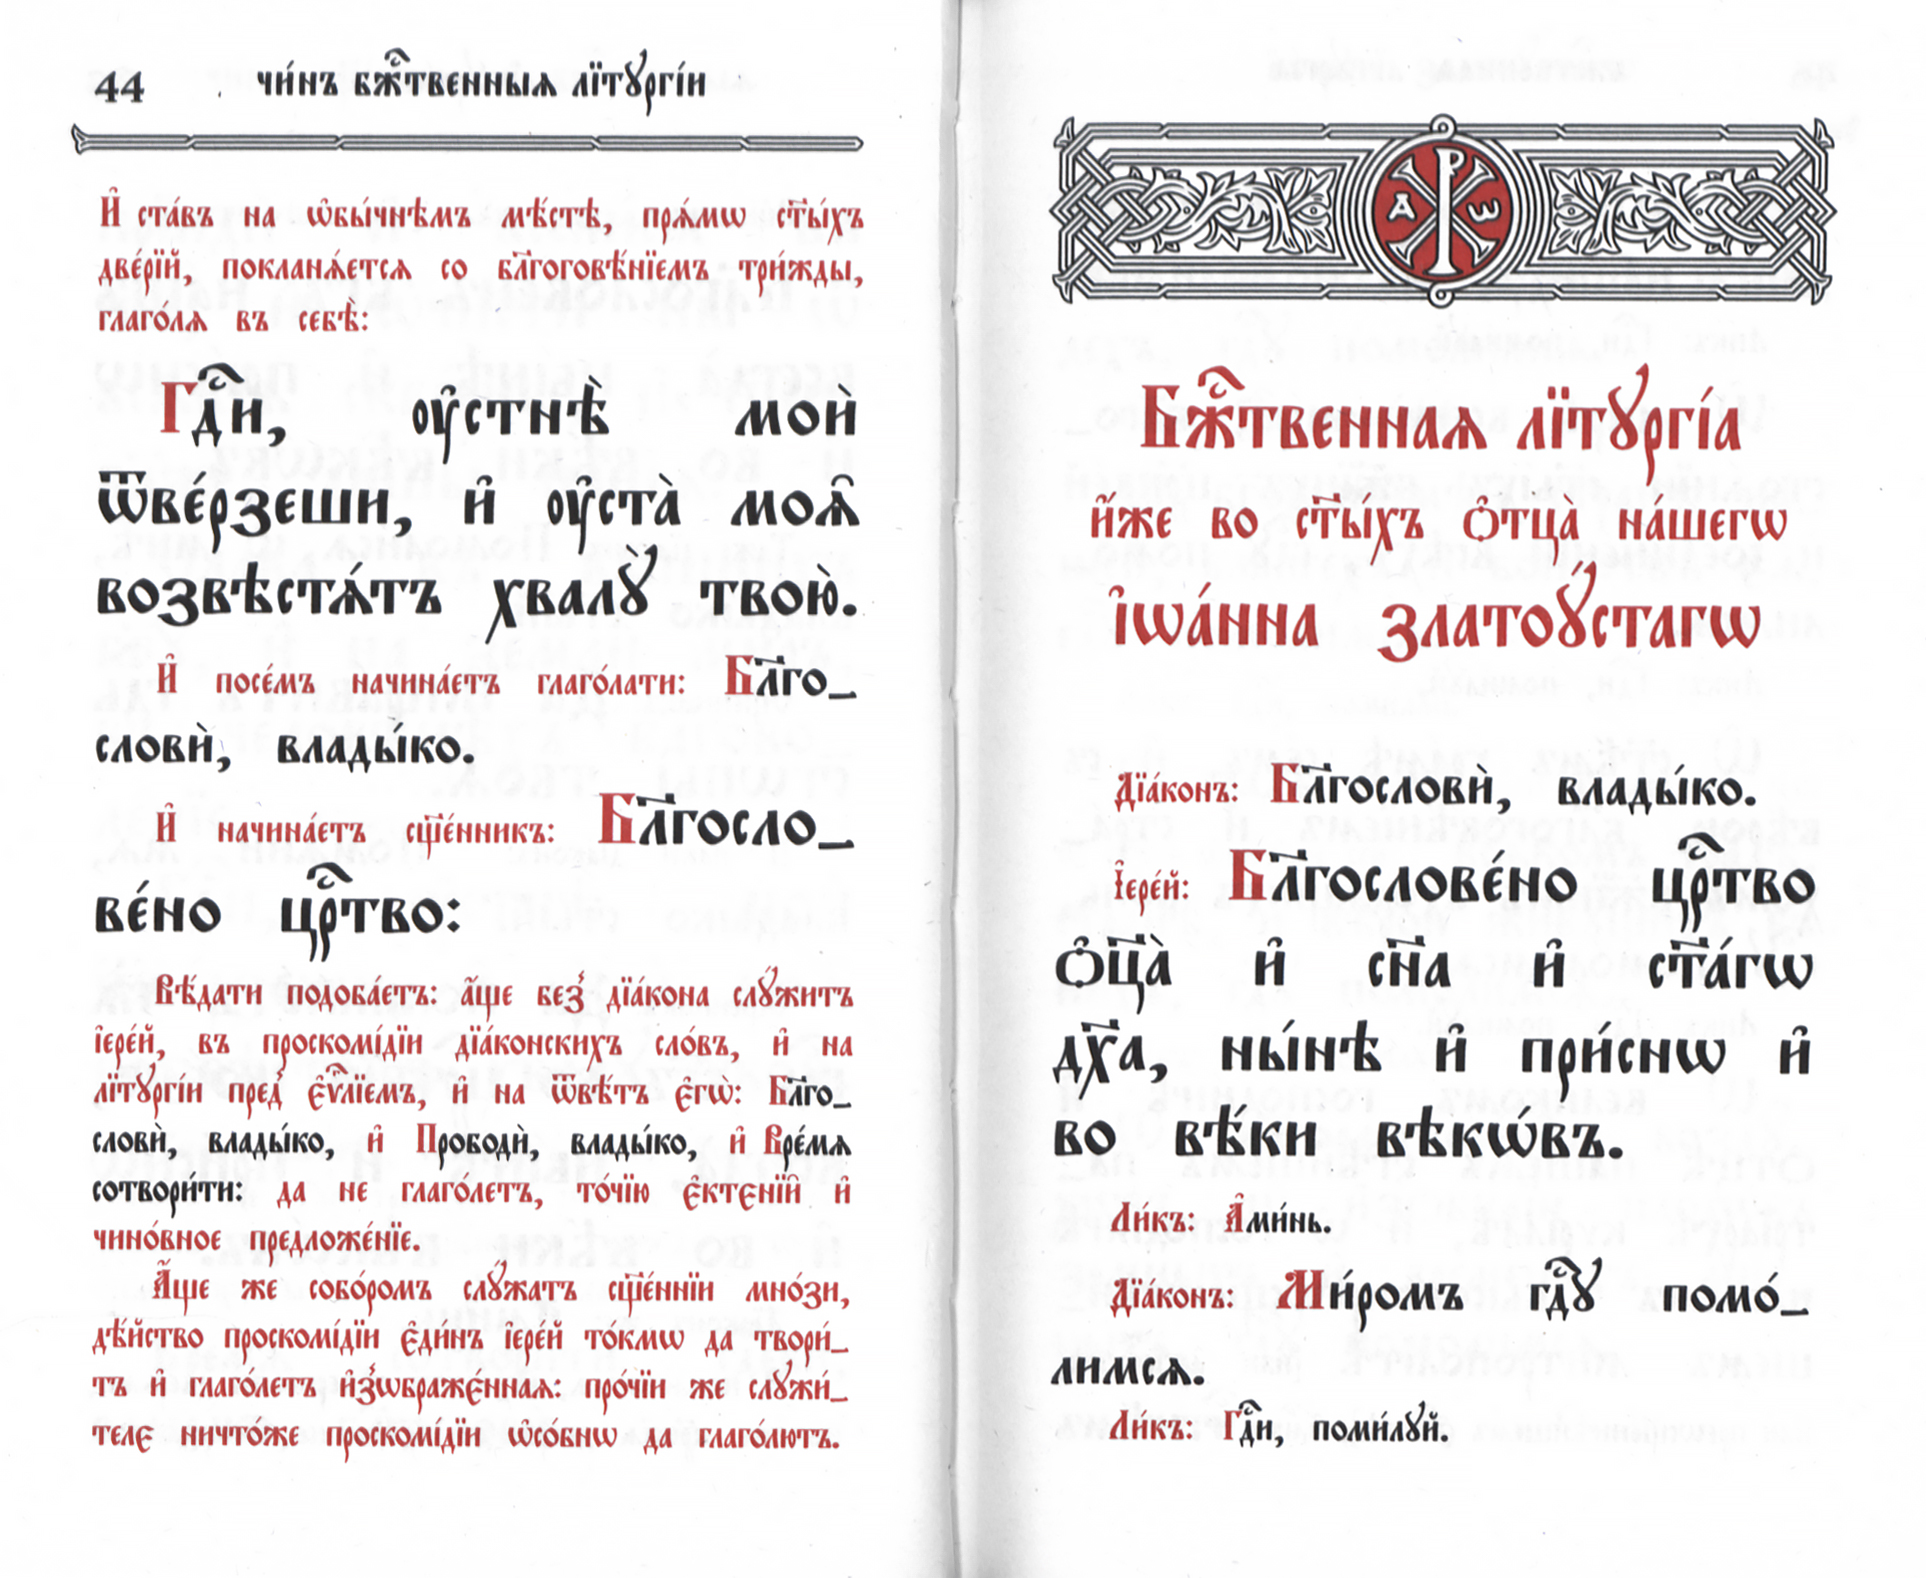 44 чи́нъ бж҃́твенныѧ лїтꙋргі́и
И҆ ста́въ на ѡ҆бы́чнѣмъ мѣ́стѣ, прѧ́мѡ ст҃ы́хъ
две́рїй, покланѧ́етсѧ со бл҃гоговѣ́нїемъ три́жды,
глаго́лѧ въ себѣ̀:
Гдⷭ҇и, ᲂу҆стнѣ̀ моѝ
ѿве́рзеши, и҆ ᲂу҆ста̀ моѧ̑
возвѣстѧ́тъ хвалꙋ̀ твою̀.
И҆ посе́мъ начина́етъ глаго́лати: Бл҃го_
словѝ, влады́ко.
И҆ начина́етъ сщ҃е́нникъ: Бл҃госло_
ве́но црⷭ҇тво:
Вѣ́дати подоба́етъ: а҆́ще без̾ дїа́кона слꙋ́житъ
і҆ере́й, въ проскомі́дїи дїа́конскихъ сло́въ, и҆ на
лїтꙋргі́и пред̾ є҆ѵⷢ҇лїемъ, и҆ на ѿвѣ́тъ є҆гѡ̀: Бл҃го_
словѝ, влады́ко, и҆ Прободѝ, влады́ко, и҆ Вре́мѧ
сотвори́ти: да не глаго́летъ, то́чїю є҆ктєнїи̑ и҆
чино́вное предложе́нїе.
А҆́ще же собо́ромъ слꙋ́жатъ сщ҃е́ннїи мно́зи,
дѣ́йство проскомі́дїи є҆ди́нъ і҆ере́й то́кмѡ да твори́_
тъ и҆ глаго́летъ и҆з̾ѡбражє́ннаѧ: про́чїи же слꙋжи́_
телє ничто́же проскомі́дїи ѡ҆со́бнѡ да глаго́лютъ.
Бжⷭ҇твеннаѧ лїтꙋргі́а
и҆́же во ст҃ы́хъ ѻ҆тца̀ на́шегѡ
і҆ѡа́нна златоꙋ́стагѡ
Дїа́конъ: Бл҃гословѝ, влады́ко.
І҆ере́й: Бл҃гослове́но црⷭ҇тво
ѻ҆ц҃а̀ и҆ сн҃а и҆ ст҃а́гѡ
дх҃а, ны́нѣ и҆ при́снѡ и҆
во вѣ́ки вѣкѡ́въ.
Ли́къ: А҆ми́нь.
Дїа́конъ: Ми́ромъ гдⷭ҇ꙋ помо́_
лимсѧ.
Ли́къ: Гдⷭ҇и, поми́лꙋй.